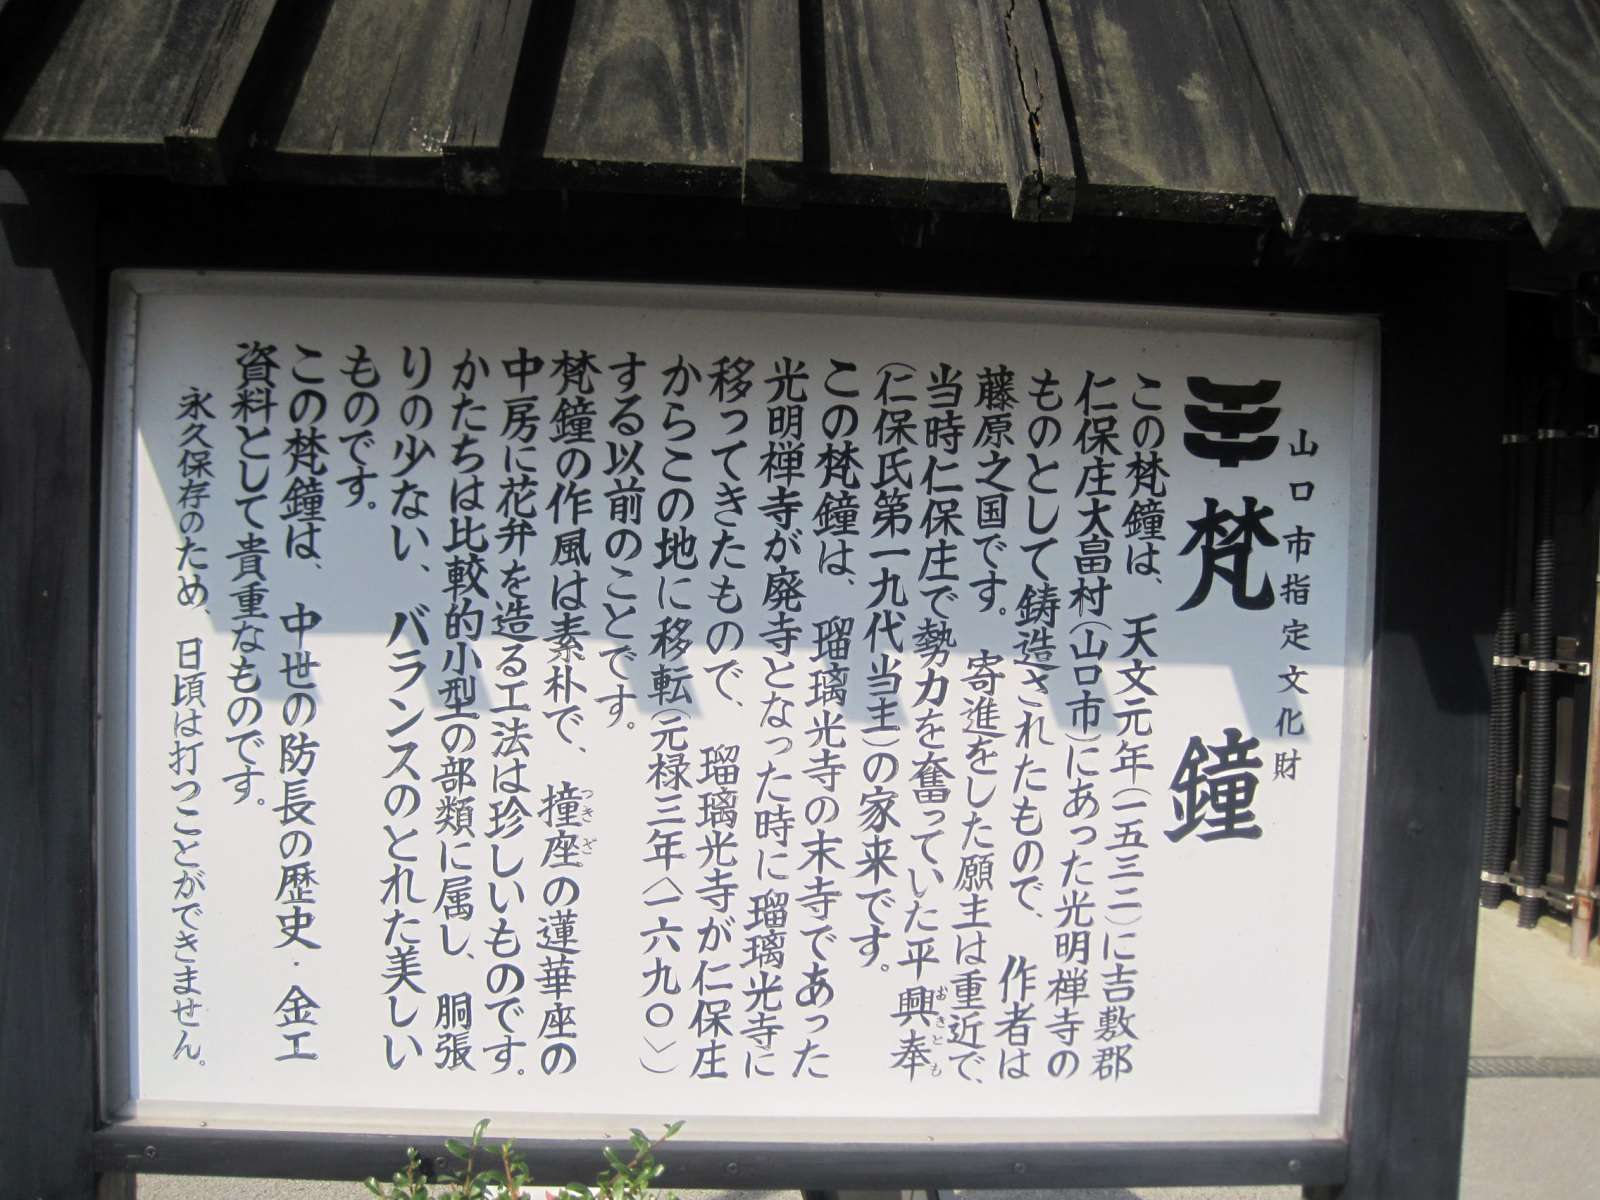 山口市指定文化財
梵鐘
この梵鐘は、天文元年(一五三二)に吉敷郡
仁保庄大畠村(山口市)にあった光明禅寺の
ものとして鋳造されたもので、作者は
藤原之国です。寄進をした願主は重近で、
当時仁保庄で勢力を奮っていた平興奉おきとも
(仁保氏第一九代当主)の家来です。
この梵鐘は、瑠璃光寺の末寺であった
光明禅寺が廃寺となった時に瑠璃光寺に
移ってきたもので、瑠璃光寺が仁保庄
からこの地に移転(元禄三年〈一六九〇〉)
する以前のことです。
梵鐘の作風は素朴で、撞座つきざの蓮華座の
中房に花弁を造る工法は珍しいものです。
かたちは比較的小型の部類に属し、胴張
りの少ない、バランスのとれた美しい
ものです。
この梵鐘は、中世の防長の歴史・金工
資料として貴重なものです。
永久保存のため、日頃は打つことができません。